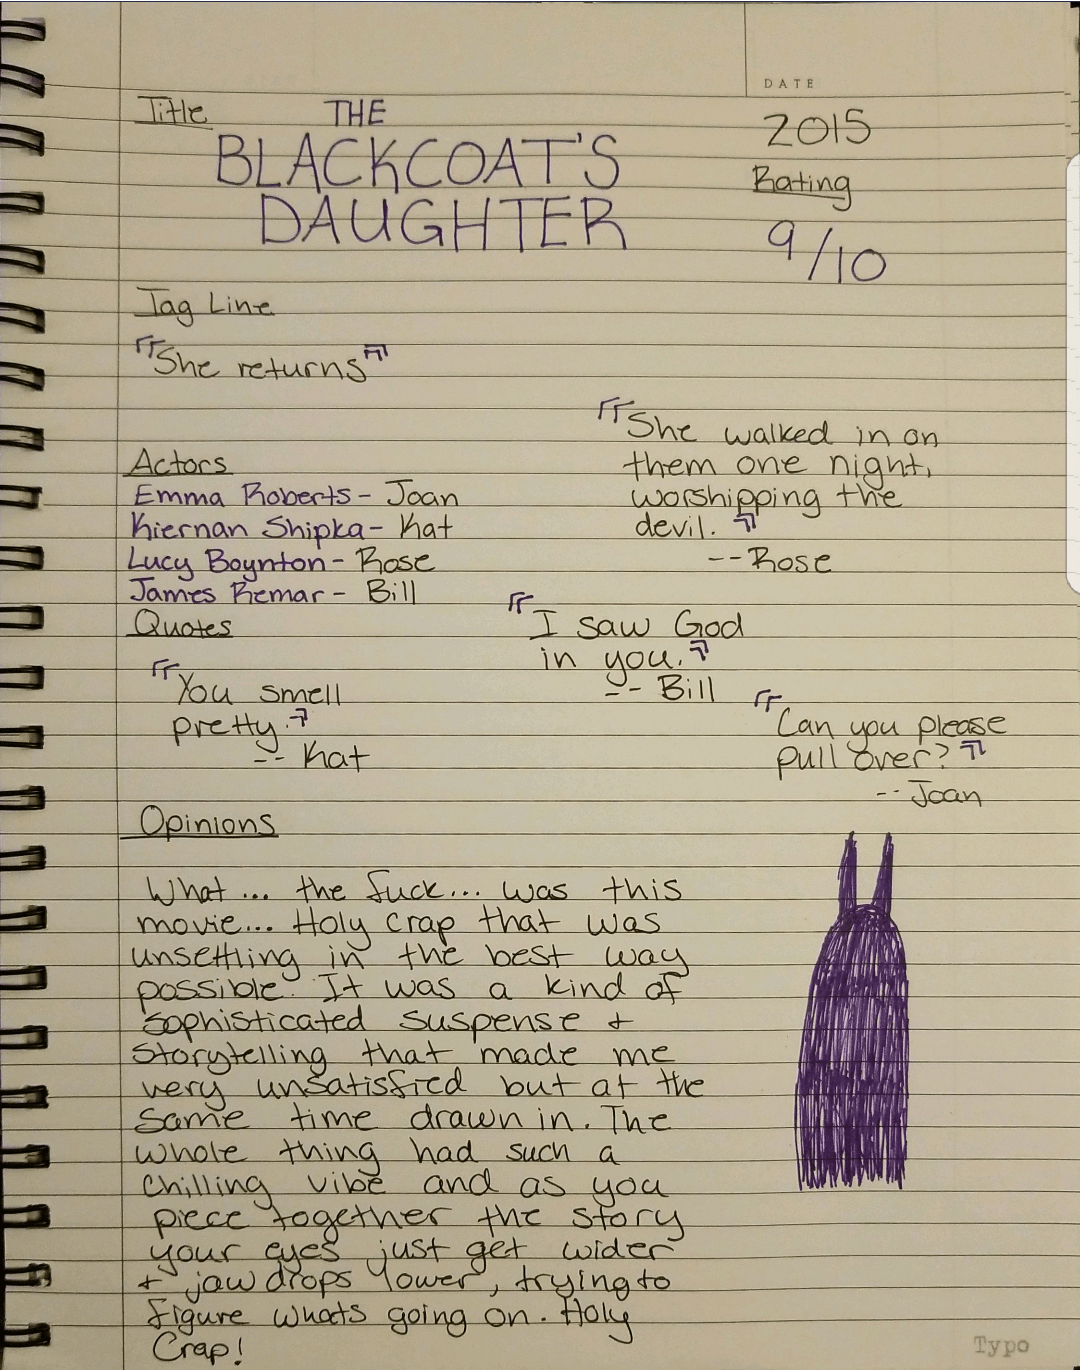 DATE
Title
THE
BLACKCOAT'S
DAUGHTER
2015
Rating
9/10
Tag Line
"She returns"
Actors
Emma Roberts - Joan
Kiernan Shipka - Kat
Lucy Boynton - Rose
James Remar - Bill
"She walked in on
them one night,
worshipping the
devil."
-- Rose
Quotes
"I saw God
in you."
-- Bill
"You smell
pretty."
-- Kat
"Can you please
pull over?"
-- Joan
Opinions
What... the fuck... was this
movie... Holy crap that was
unsettling in the best way
possible. It was a kind of
sophisticated suspense +
storytelling that made me
very unsatisfied but at the
same time drawn in. The
whole thing had such a
chilling vibe and as you
piece together the story
your eyes just get wider
+ jaw drops lower, trying to
figure whats going on. Holy
Crap!
Typo